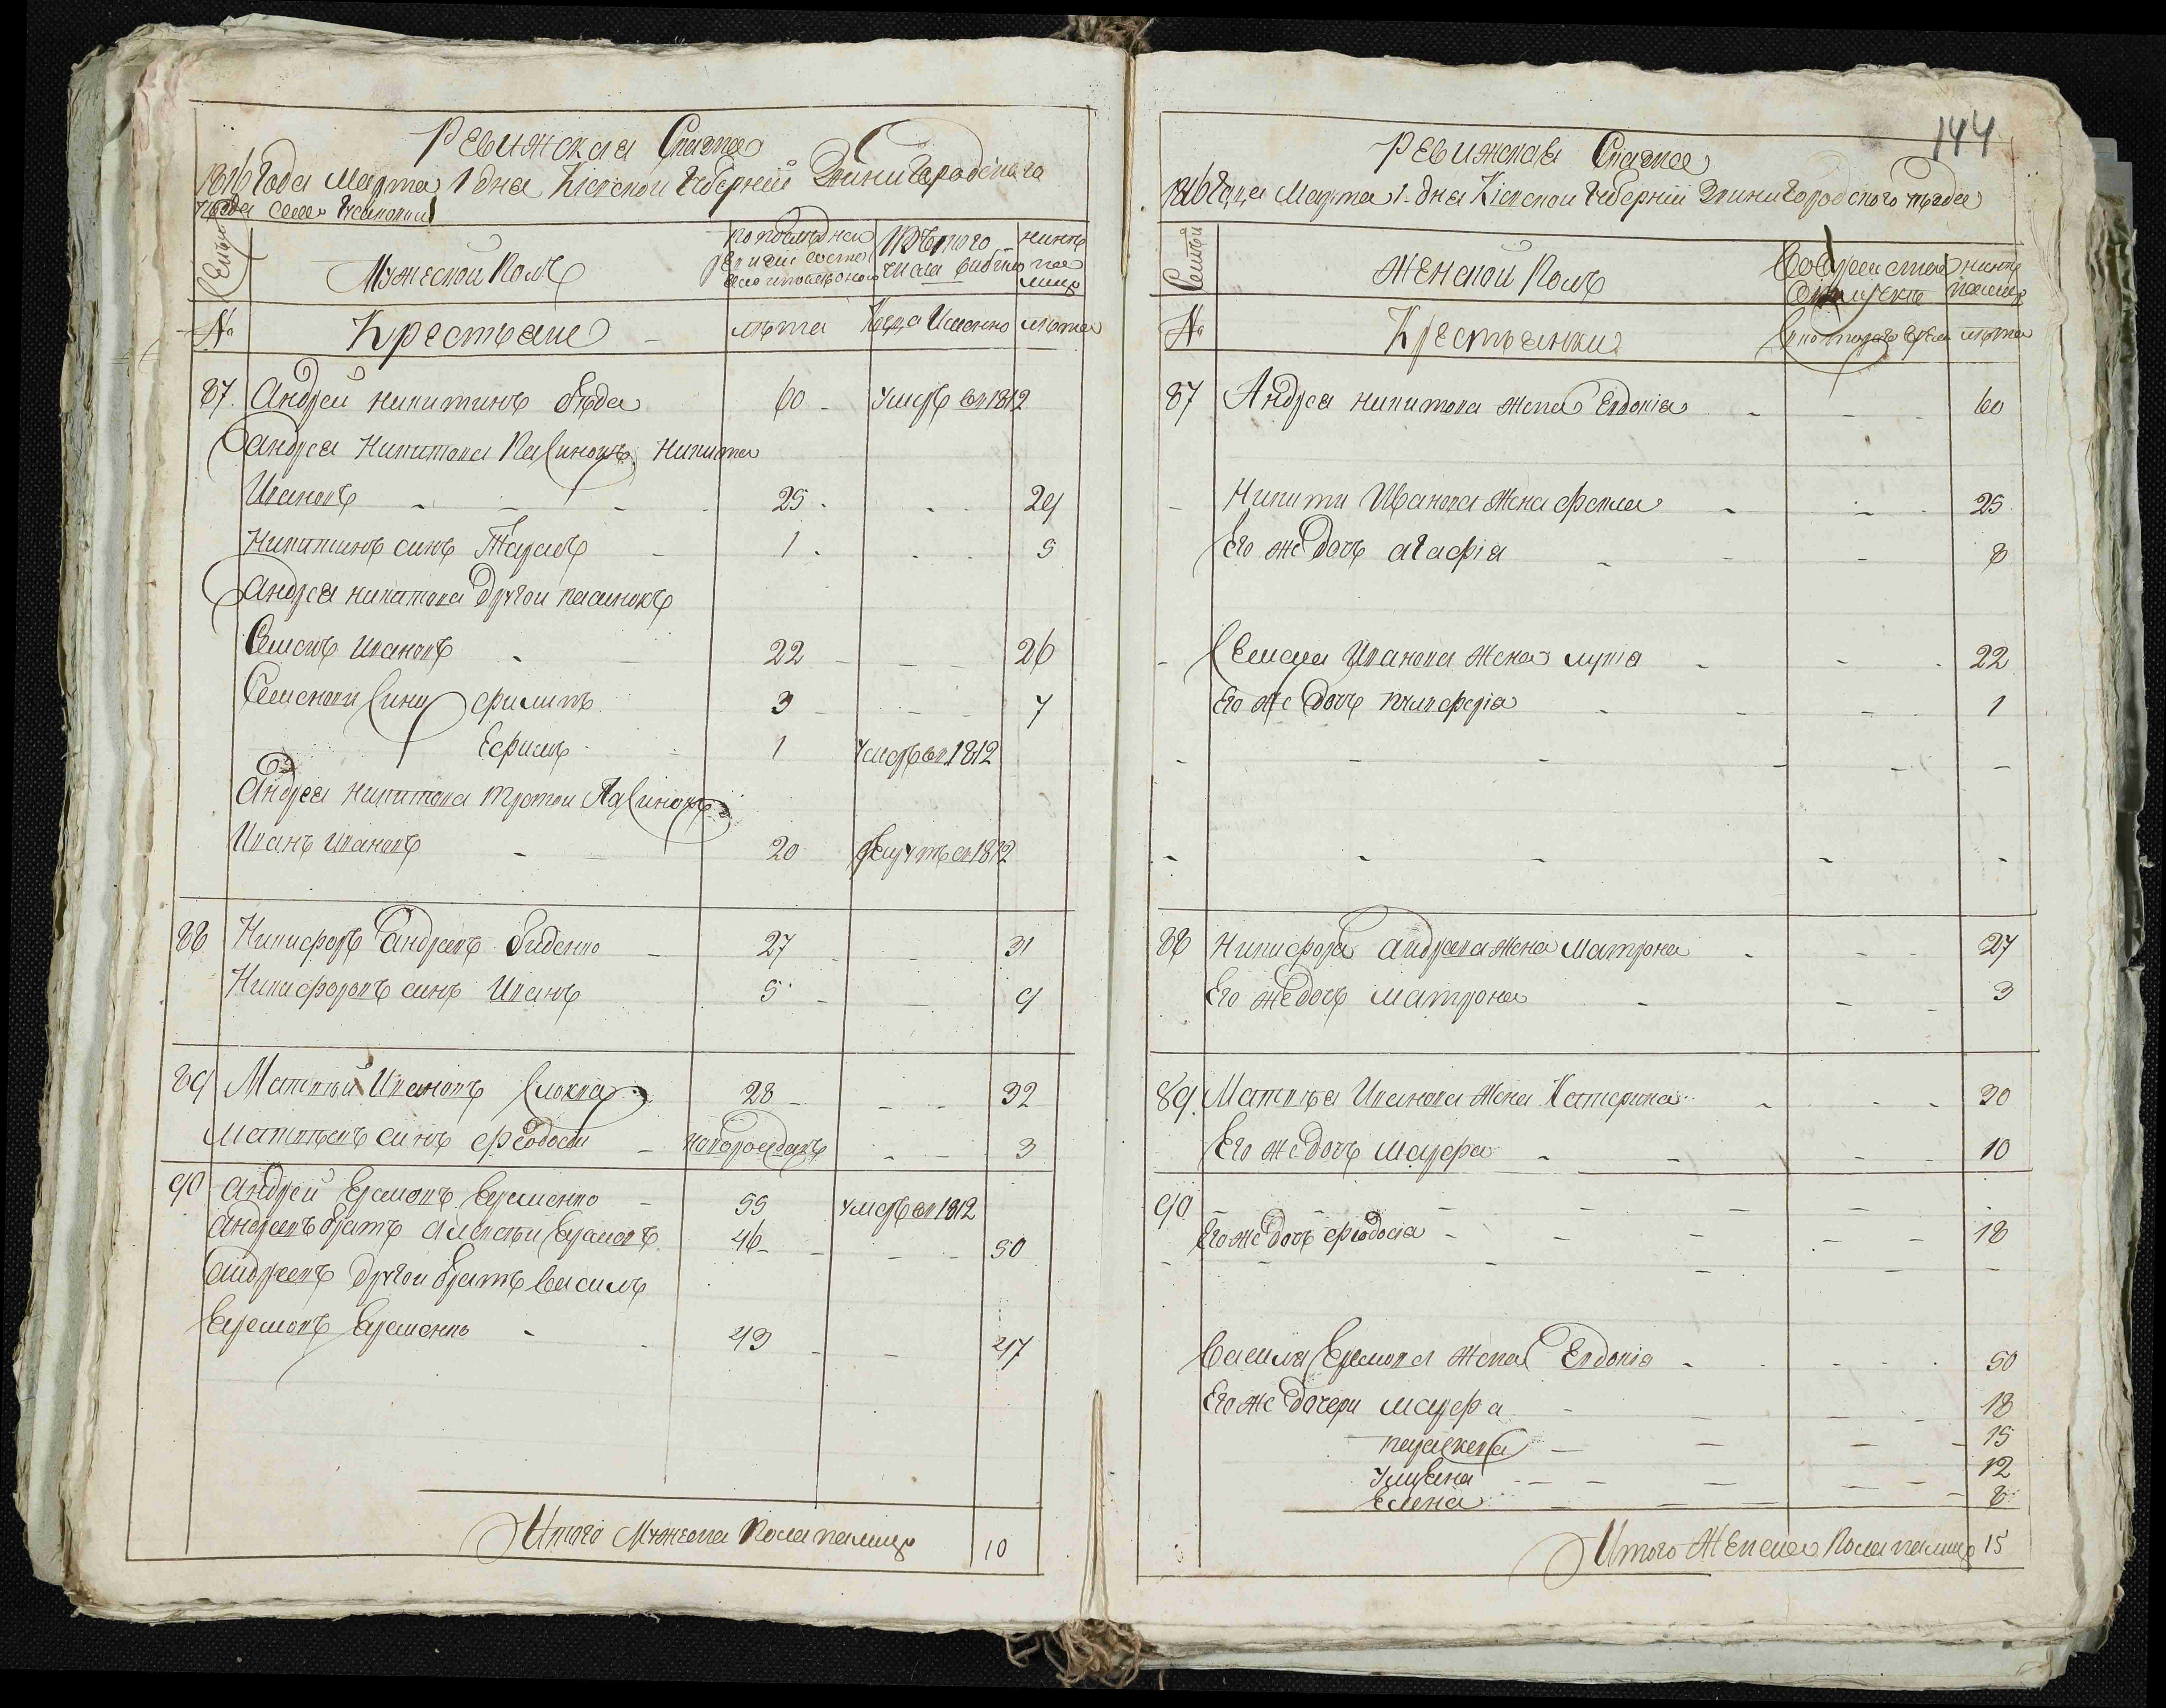 Ревижская Сказка
1816 Года Марта 1 дня Кіевской Губерніи Звинигородского
уезда села
Семьи
Мужеской Полъ
по последней ревизіи состояло
Изъ того числа выбыло
ныне на лицо
№
Крестьяне
лѣта
Когда Именно
лѣта
87. Андрей никитинъ бѣда 60 - умеръ вп 1812
Андрея Никитова Пасинокъ Никита
Ивановъ - - - 25 - - 29
Никитинъ синъ Тарасъ - 1 - - 5
Андрея никитова другои пасинокъ
Семенъ Ивановъ - 22 - - - 26
Семенови Сини филипъ 3 - - - 7
Ефимъ - 1 умеръ вп 1812
Андрея никитова третои Пасинокъ
Иванъ Ивановъ - 20 рекрутъ вп 1812
88 Никифоръ Андреевъ биденко - 27 - - 31
Никифоровъ синъ Иванъ 5 - - 9
89 Матвей Ивановъ Смокла 28 - - - 32
Матвѣевъ синъ феодоси - новорожденъ - - 3
90 Андрей Еремовъ Еременко - 55 умеръ вп 1812
Андреевъ братъ Алексѣи Еремовъ 46 - - - 50
Андреевъ другои братъ василь
Еремовъ Еременко - 43 - - 47
Итого Мужеска Пола налицо 10
144
Ревижская Сказка
1816 Года Марта 1- дня Кіевскои Губерніи Звинигородского уезда
Семьи
Женской Полъ
ныне налицо
№
Крестьянки
лѣта
87 Андрея никитова жена Евдокія - - - 60
- Никити Иванова жена фекла - - - 25
Его же дочь агафія - - - 8
- Семена Иванова жена - - - 22
Его же дочь - - - 1
- - - - - -
- - - - -
88 Никифора андреева жена Матрона - - - 27
Его же дочь матрона - - - 3
89. Матвѣя Иванова жена Катерина - - - 30
Его же дочь марфа - - - 10
90 - - - - - -
Его же дочь феодосія - - - - - 18
- - - - - -
Василя Еремова жена Евдокія - - - - 50
Его же дочери марфа - - - - 18
параскева - - - - 15
улияна - - - - - 12
Елена - - - - 8
Итого Женска Пола налицо 15